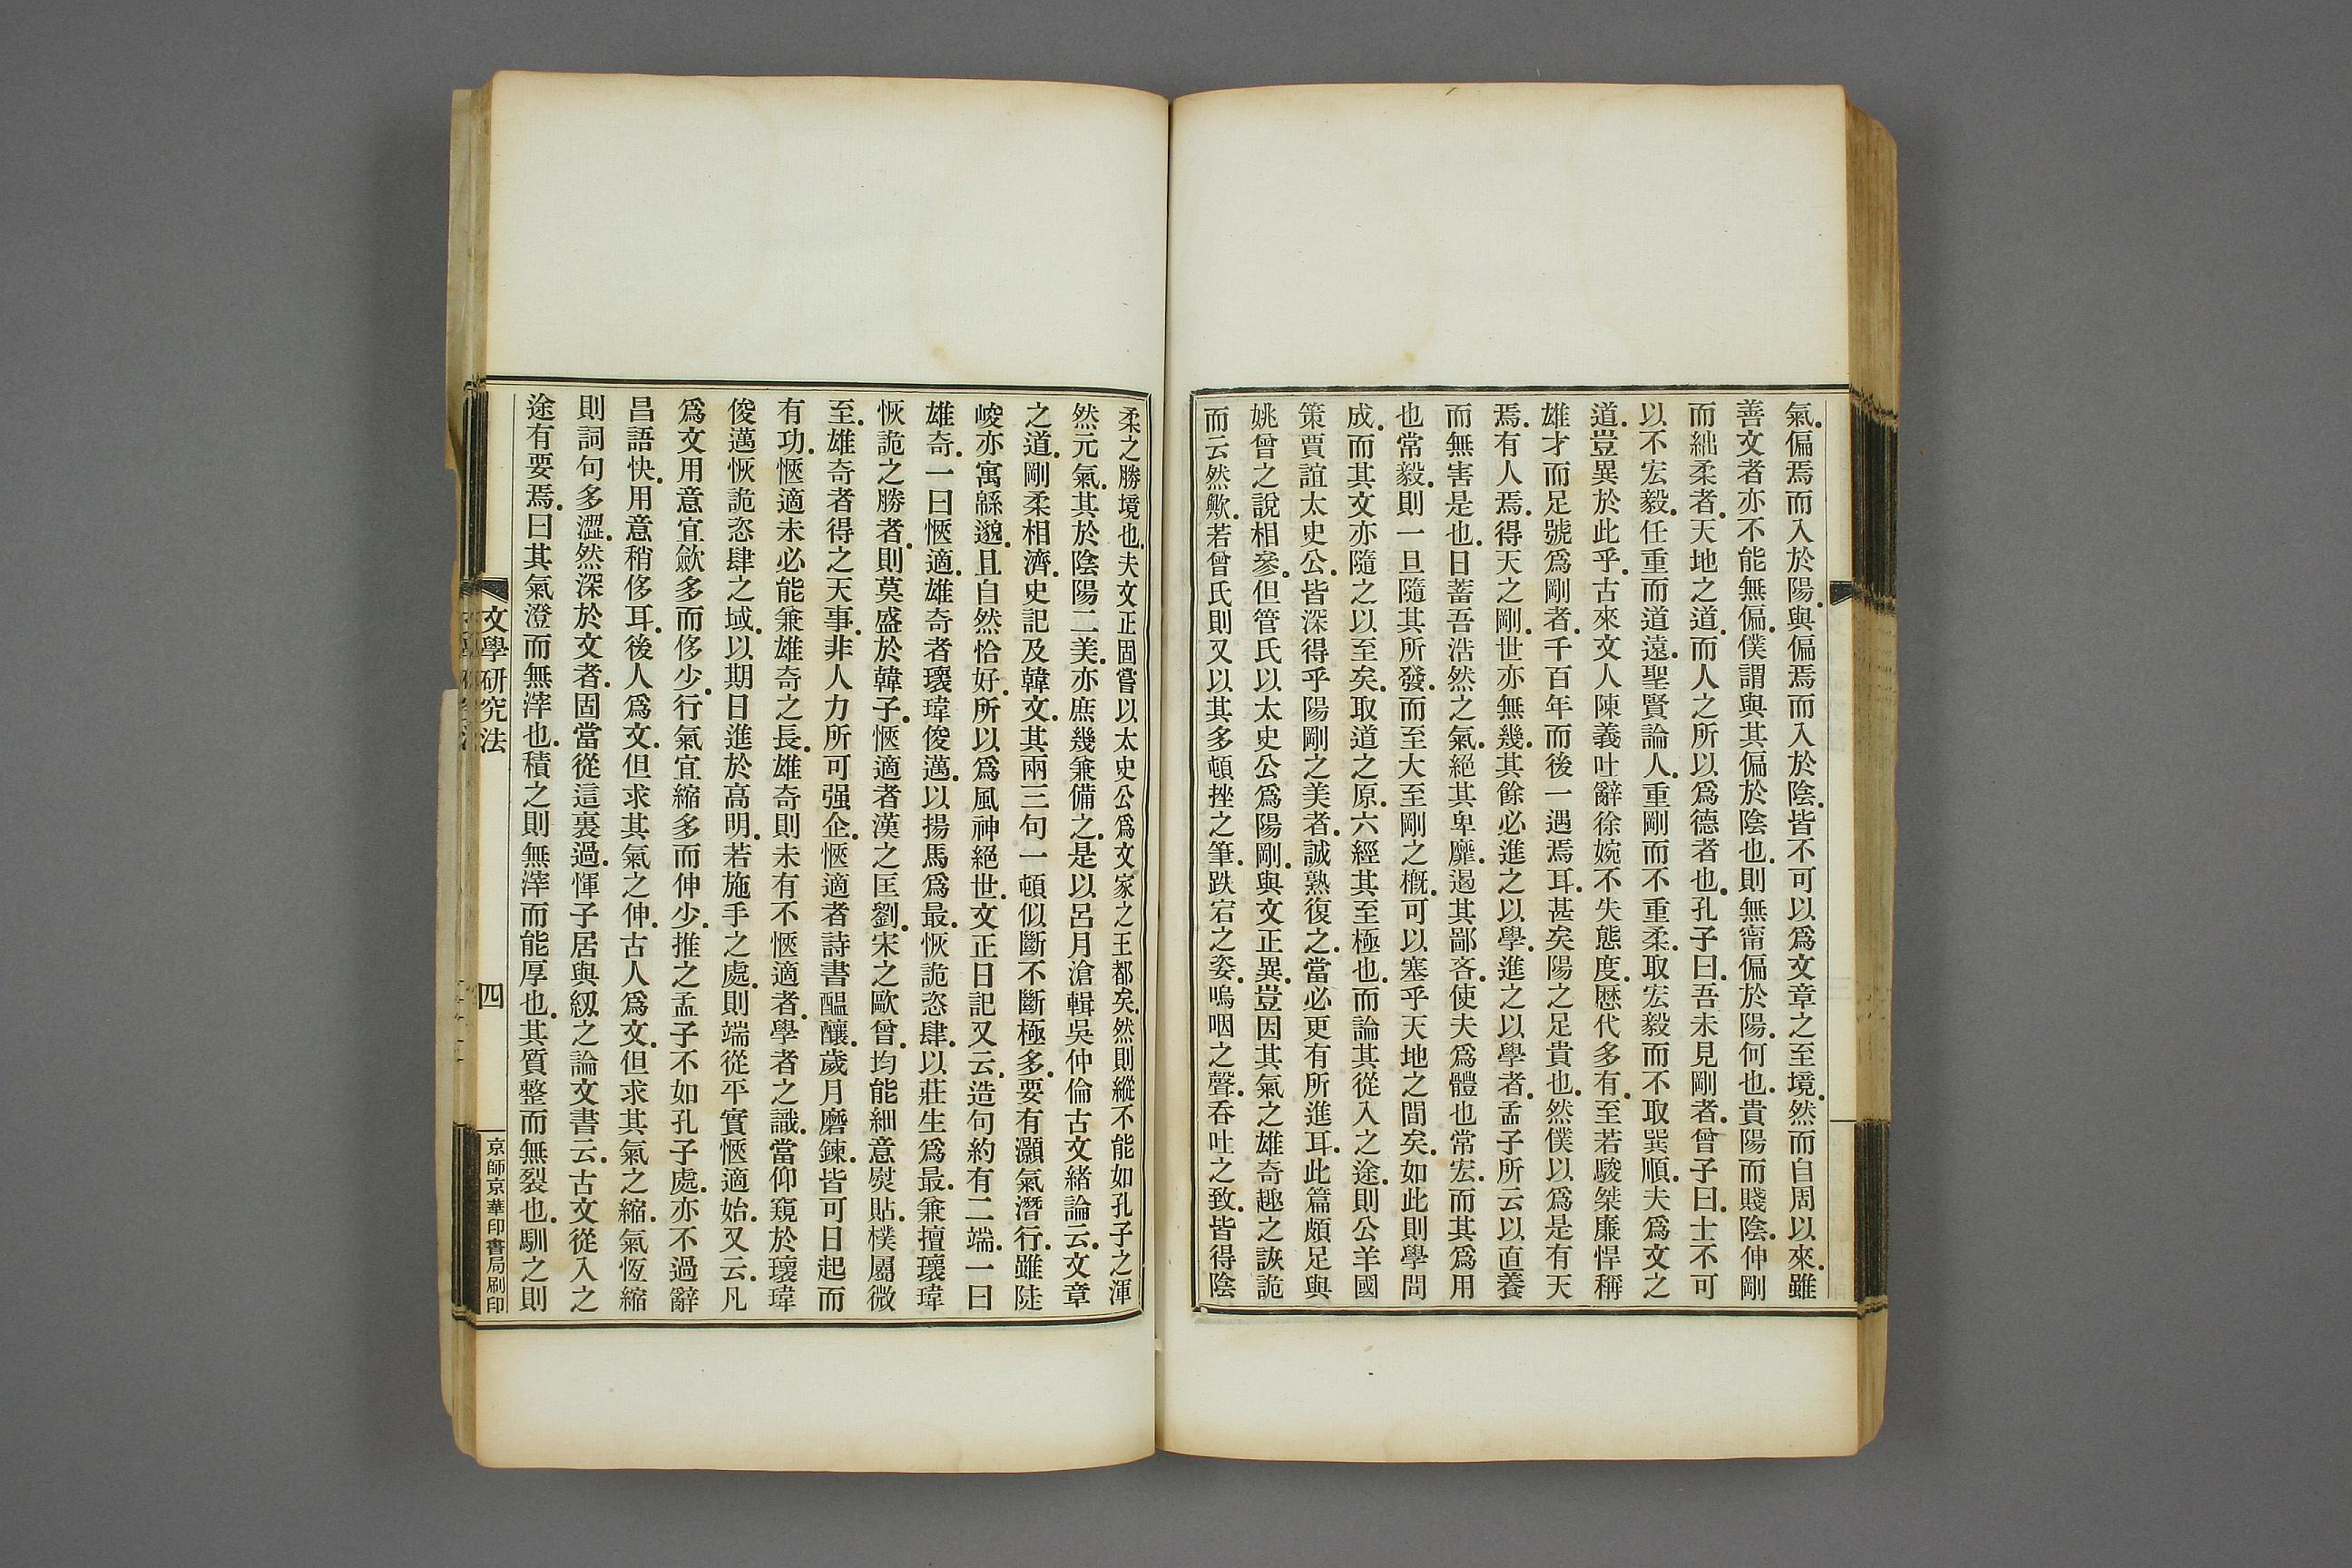 氣偏焉而入於陽與偏焉而入於陰皆不可以爲文章之至境然而自周以來雖
善文者亦不能無偏僕謂與其偏於陰也則無甯偏於陽何也貴陽而賤陰伸剛
而絀柔者天地之道而人之所以爲德者也孔子曰吾未見剛者曾子曰士不可
以不宏毅任重而道遠聖賢論人重剛而不重柔取宏毅而不取巽順夫爲文之
道豈異於此乎古來文人陳義吐辭徐婉不失態度歷代多有至若駿桀廉悍稱
雄才而足號爲剛者千百年而後一遇焉耳甚矣陽之足貴也然僕以爲是有天
焉有人焉得天之剛世亦無幾其餘必進之以學進之以學者孟子所云以直養
而無害是也日蓄吾浩然之氣絕其卑靡遏其鄙吝使夫爲體也常宏而其爲用
也常毅則一旦隨其所發而至大至剛之槪可以塞乎天地之間矣如此則學問
成而其文亦隨之以至矣取道之原六經其至極也而論其從入之途則公羊國
策賈誼太史公皆深得乎陽剛之美者誠熟復之當必更有所進耳此篇頗足與
姚曾之說相參但管氏以太史公爲陽剛與文正異豈因其氣之雄奇趣之詼詭
而云然歟若曾氏則又以其多頓挫之筆跌宕之姿嗚咽之聲吞吐之致皆得陰
柔之勝境也夫文正固嘗以太史公爲文家之王都矣然則縱不能如孔子之渾
然元氣其於陰陽二美亦庶幾兼備之是以呂月滄輯吳仲倫古文緒論云文章
之道剛柔相濟史記及韓文其兩三句一頓似斷不斷極多要有灝氣潛行雖陡
峻亦寓緜邈且自然恰好所以爲風神絕世文正日記又云造句約有二端一曰
雄奇一曰愜適雄奇者瓌瑋俊邁以揚馬爲最恢詭恣肆以莊生爲最兼擅瓌瑋
恢詭之勝者則莫盛於韓子愜適者漢之匡劉宋之歐曾均能細意熨貼樸屬微
至雄奇者得之天事非人力所可强企愜適者詩書醞釀歲月磨鍊皆可日起而
有功愜適未必能兼雄奇之長雄奇則未有不愜適者學者之識當仰窺於瓌瑋
俊邁恢詭恣肆之域以期日進於高明若施手之處則端從平實愜適始又云凡
爲文用意宜歛多而侈少行氣宜縮多而伸少推之孟子不如孔子處亦不過辭
昌語快用意稍侈耳後人爲文但求其氣之伸古人爲文但求其氣之縮氣恆縮
則詞句多澀然深於文者固當從這裏過惲子居與紉之論文書云古文從入之
途有要焉曰其氣澄而無滓也積之則無滓而能厚也其質整而無裂也馴之則
文學研究法
四
京師京華印書局刷印